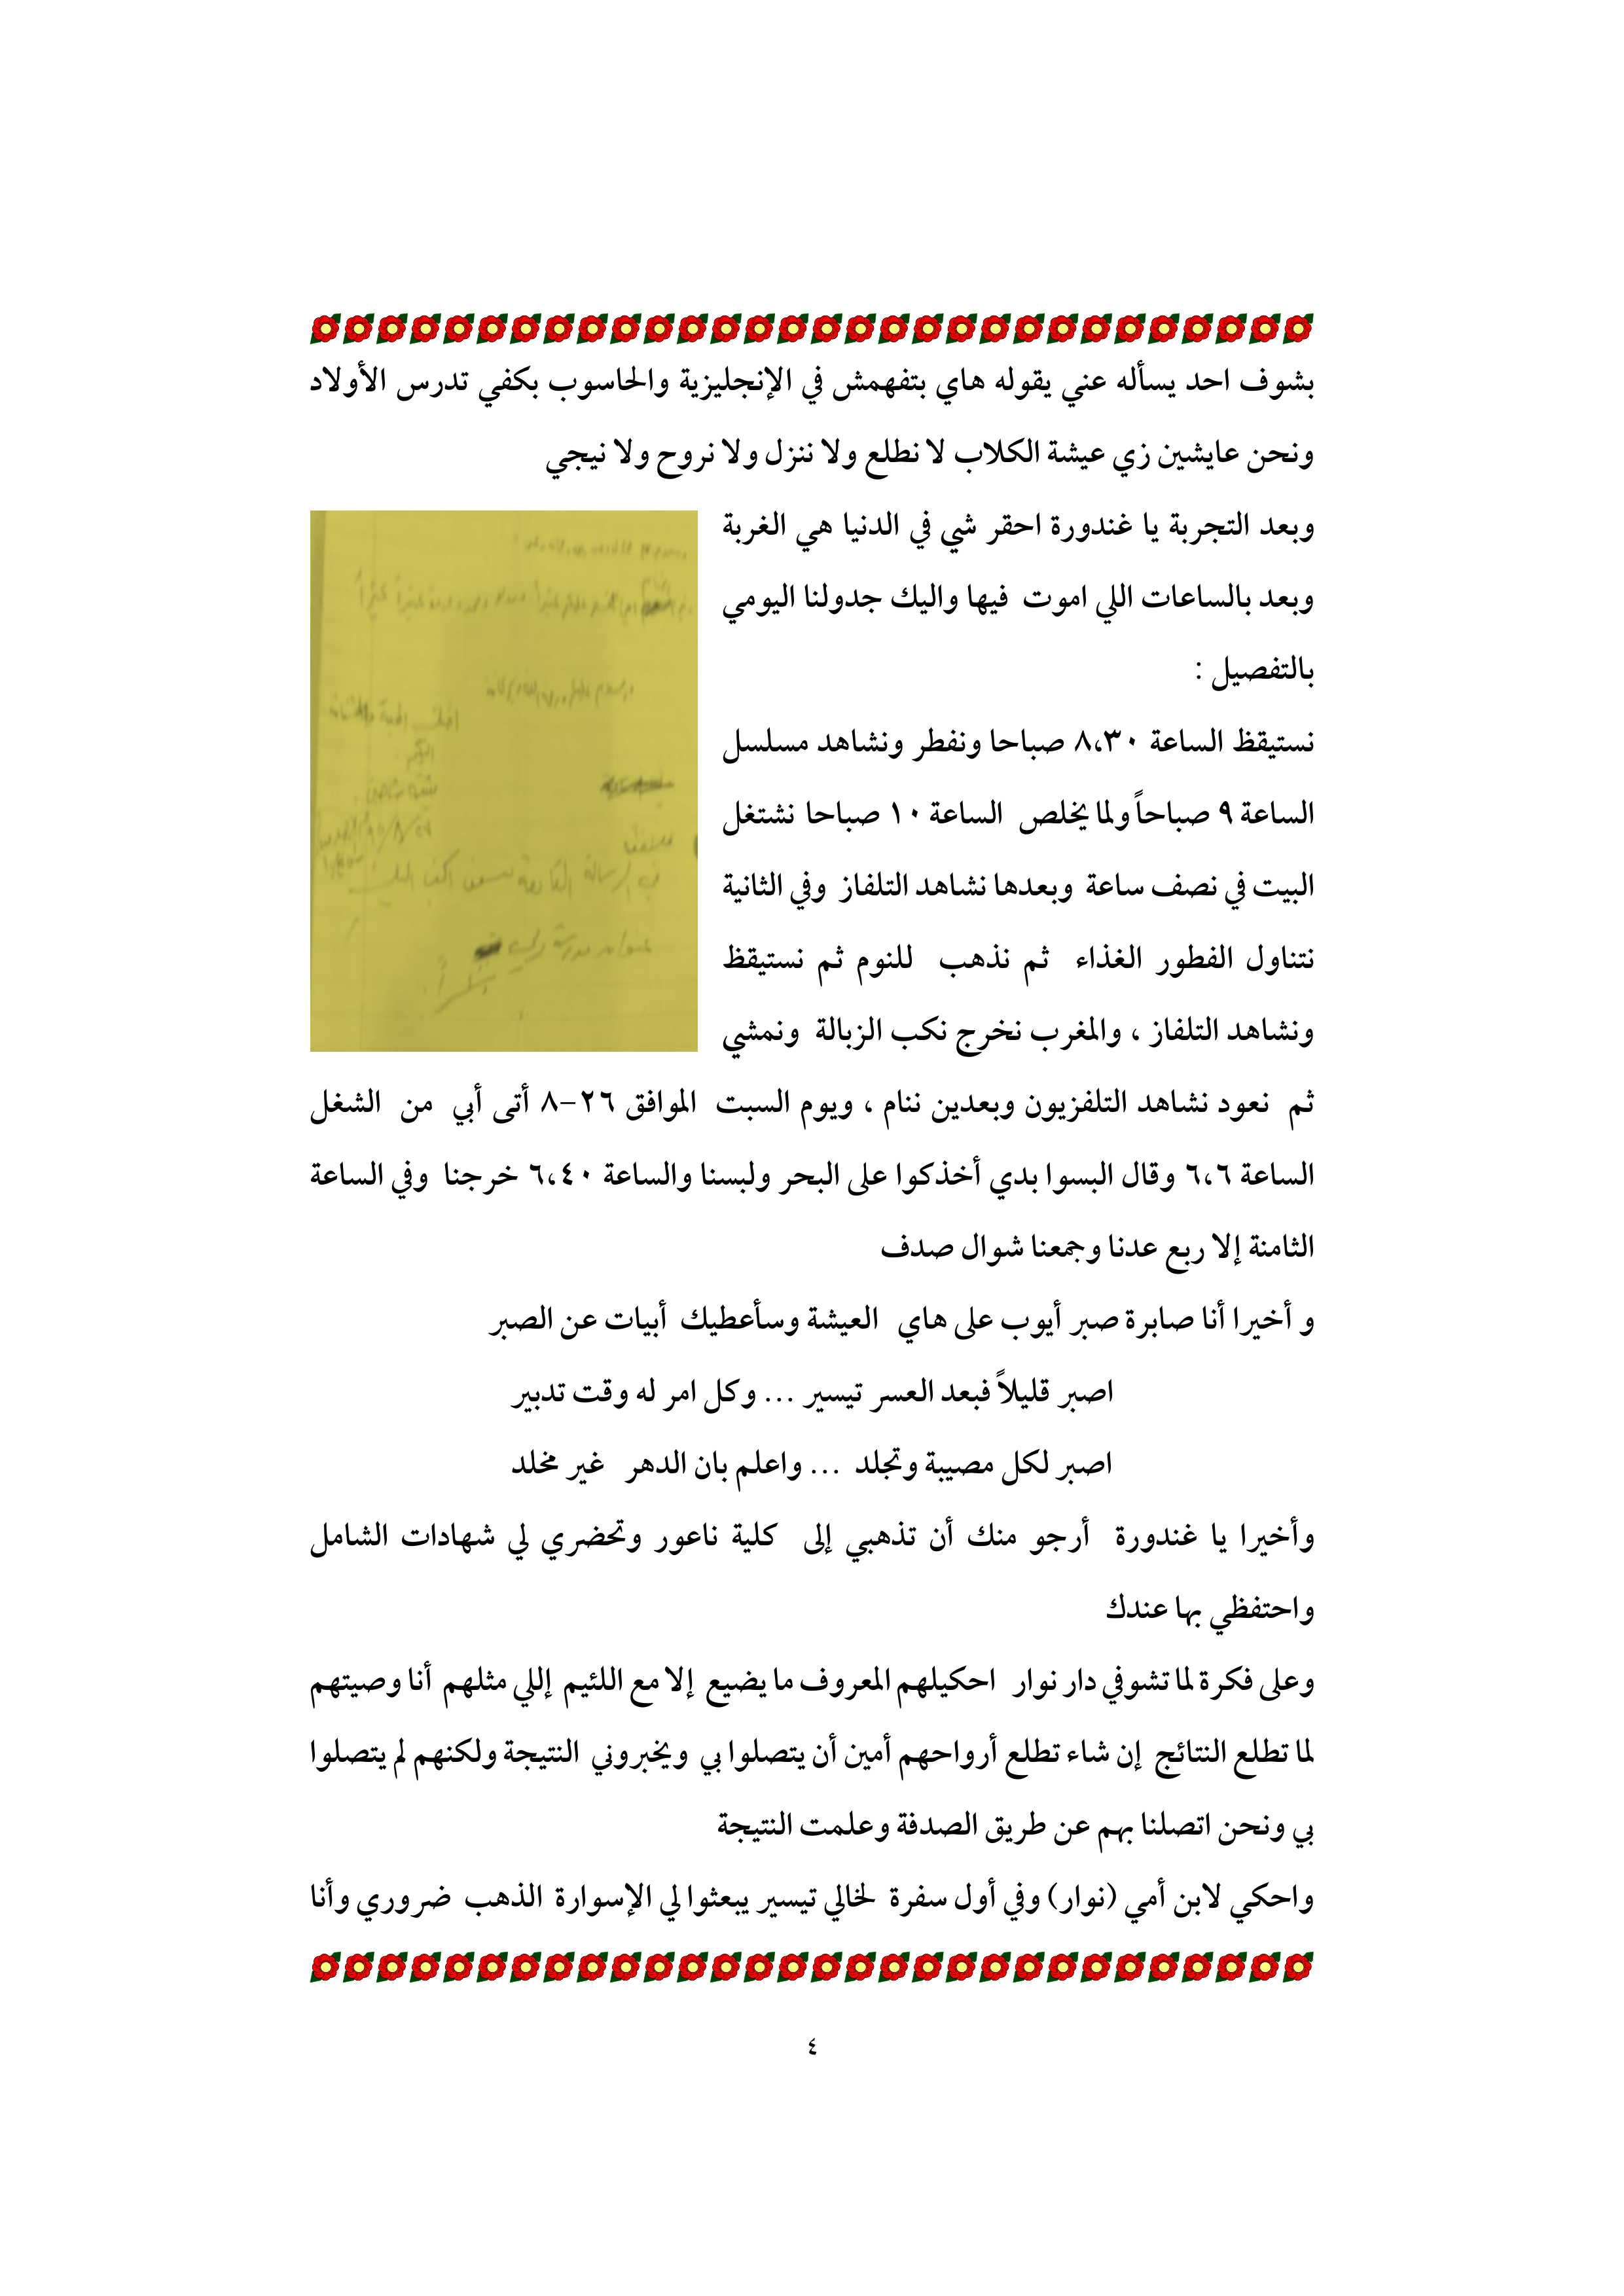 بشوف احد يسأله عني يقوله هاي بتفهمش في الإنجليزية والحاسوب بكفي تدرس الأولاد
ونحن عايشين زي عيشة الكلاب لا نطلع ولا ننزل ولا نروح ولا نيجي
وبعد التجربة يا غندورة احقر شي في الدنيا هي الغربة
وبعد بالساعات اللي اموت فيها واليك جدولنا اليومي
بالتفصيل :
نستيقظ الساعة ٨،٣٠ صباحا ونفطر ونشاهد مسلسل
الساعة ٩ صباحاً ولما يخلص الساعة ١٠ صباحا نشتغل
البيت في نصف ساعة وبعدها نشاهد التلفاز وفي الثانية
نتناول الفطور الغذاء ثم نذهب للنوم ثم نستيقظ
ونشاهد التلفاز ، والمغرب نخرج نكب الزبالة ونمشي
ثم نعود نشاهد التلفزيون وبعدين ننام ، ويوم السبت الموافق ٢٦-٨ أتى أبي من الشغل
الساعة ٦،٦ وقال البسوا بدي أخذكوا على البحر ولبسنا والساعة ٦،٤٠ خرجنا وفي الساعة
الثامنة إلا ربع عدنا وجمعنا شوال صدف
و أخيرا أنا صابرة صبر أيوب على هاي العيشة وسأعطيك أبيات عن الصبر
اصبر قليلاً فبعد العسر تيسير ... وكل امر له وقت تدبير
اصبر لكل مصيبة وتجلد ... واعلم بان الدهر غير مخلد
وأخيرا يا غندورة أرجو منك أن تذهبي إلى كلية ناعور وتحضري لي شهادات الشامل
واحتفظي بها عندك
وعلى فكرة لما تشوفي دار نوار احكيلهم المعروف ما يضيع إلا مع اللئيم إللي مثلهم أنا وصيتهم
لما تطلع النتائج إن شاء تطلع أرواحهم أمين أن يتصلوا بي ويخبروني النتيجة ولكنهم لم يتصلوا
بي ونحن اتصلنا بهم عن طريق الصدفة وعلمت النتيجة
واحكي لابن أمي (نوار) وفي أول سفرة لخالي تيسير يبعثوا لي الإسوارة الذهب ضروري وأنا
٤